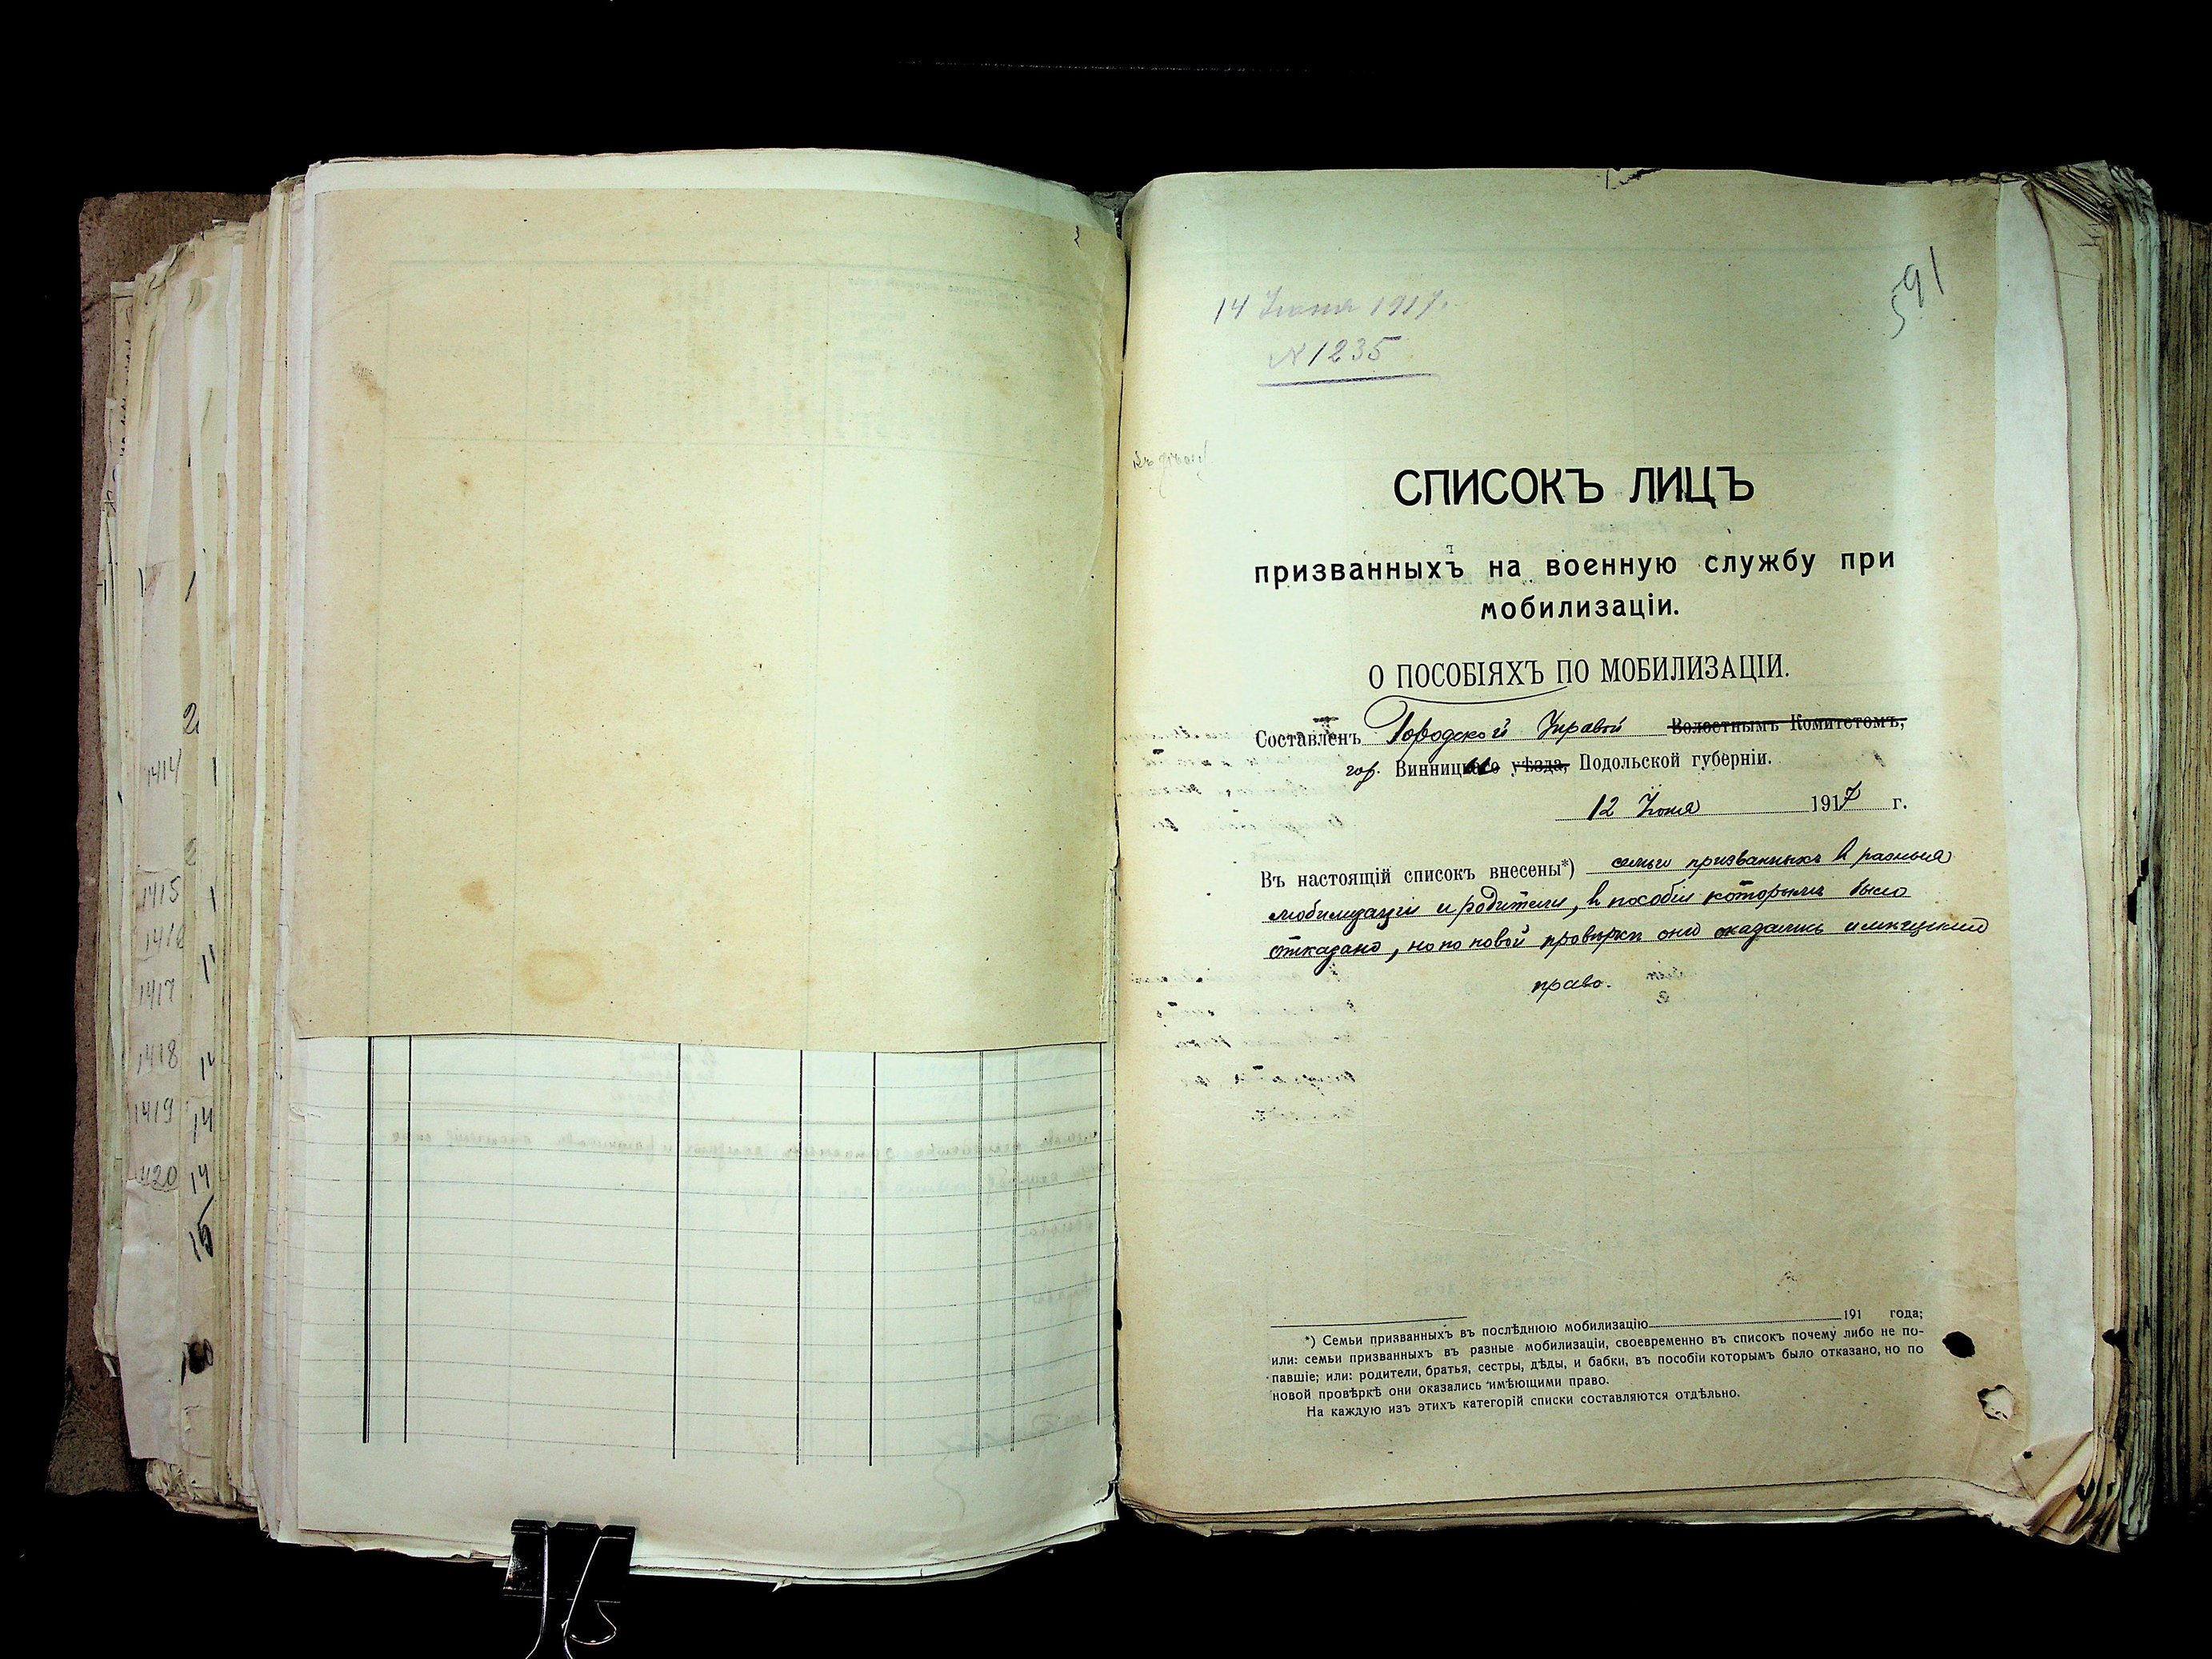 1414
1415
1416
1417
1418
1419
1420
591
14 Іюня 1917 г.
№ 1235
СПИСОКЪ ЛИЦЪ
призванныхъ на военную службу при
мобилизаціи.
О ПОСОБІЯХЪ ПО МОБИЛИЗАЦІИ.
Составленъ Городской Управой Волостнымъ Комитетомъ,
гор. Винницкаго уѣзда, Подольской губерніи.
12 Іюня 1917 г.
Въ настоящій списокъ внесены*) семьи призванныхъ в разныя
мобилизаціи и родители, в пособіи которымъ было
отказано, но по новой провѣркѣ они оказались имѣющими
право.
191 года;
*) Семьи призванныхъ въ послѣднюю мобилизацію
или: семьи призванныхъ въ разные мобилизаціи, своевременно въ списокъ почему либо не по-
павшіе; или: родители, братья, сестры, дѣды, и бабки, въ пособіи которымъ было отказано, но по
новой провѣркѣ они оказались имѣющими право.
На каждую изъ этихъ категорій списки составляются отдѣльно.